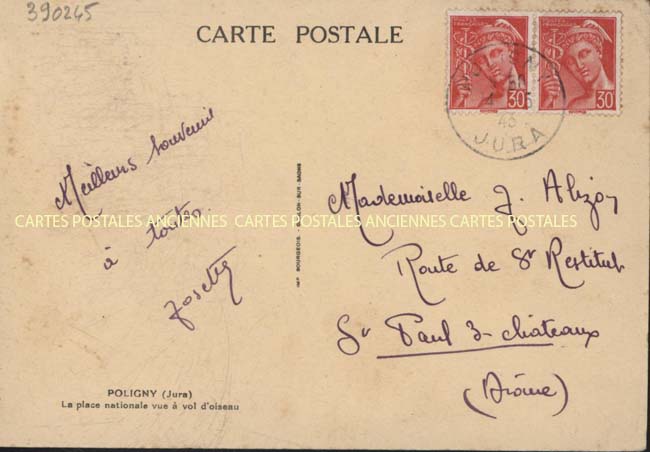 390245
CARTE POSTALE
30 30
43
JURA
Meilleurs souvenirs
à toutes
Josette
IMP. BOURGEOIS - CHALON-SUR-SAONE
Mademoiselle J. Alizon
Route de St Restitut
St Paul 3 châteaux
(Drôme)
CARTES POSTALES ANCIENNES CARTES POSTALES ANCIENNES CARTES POSTALES
POLIGNY (Jura)
La place nationale vue à vol d'oiseau